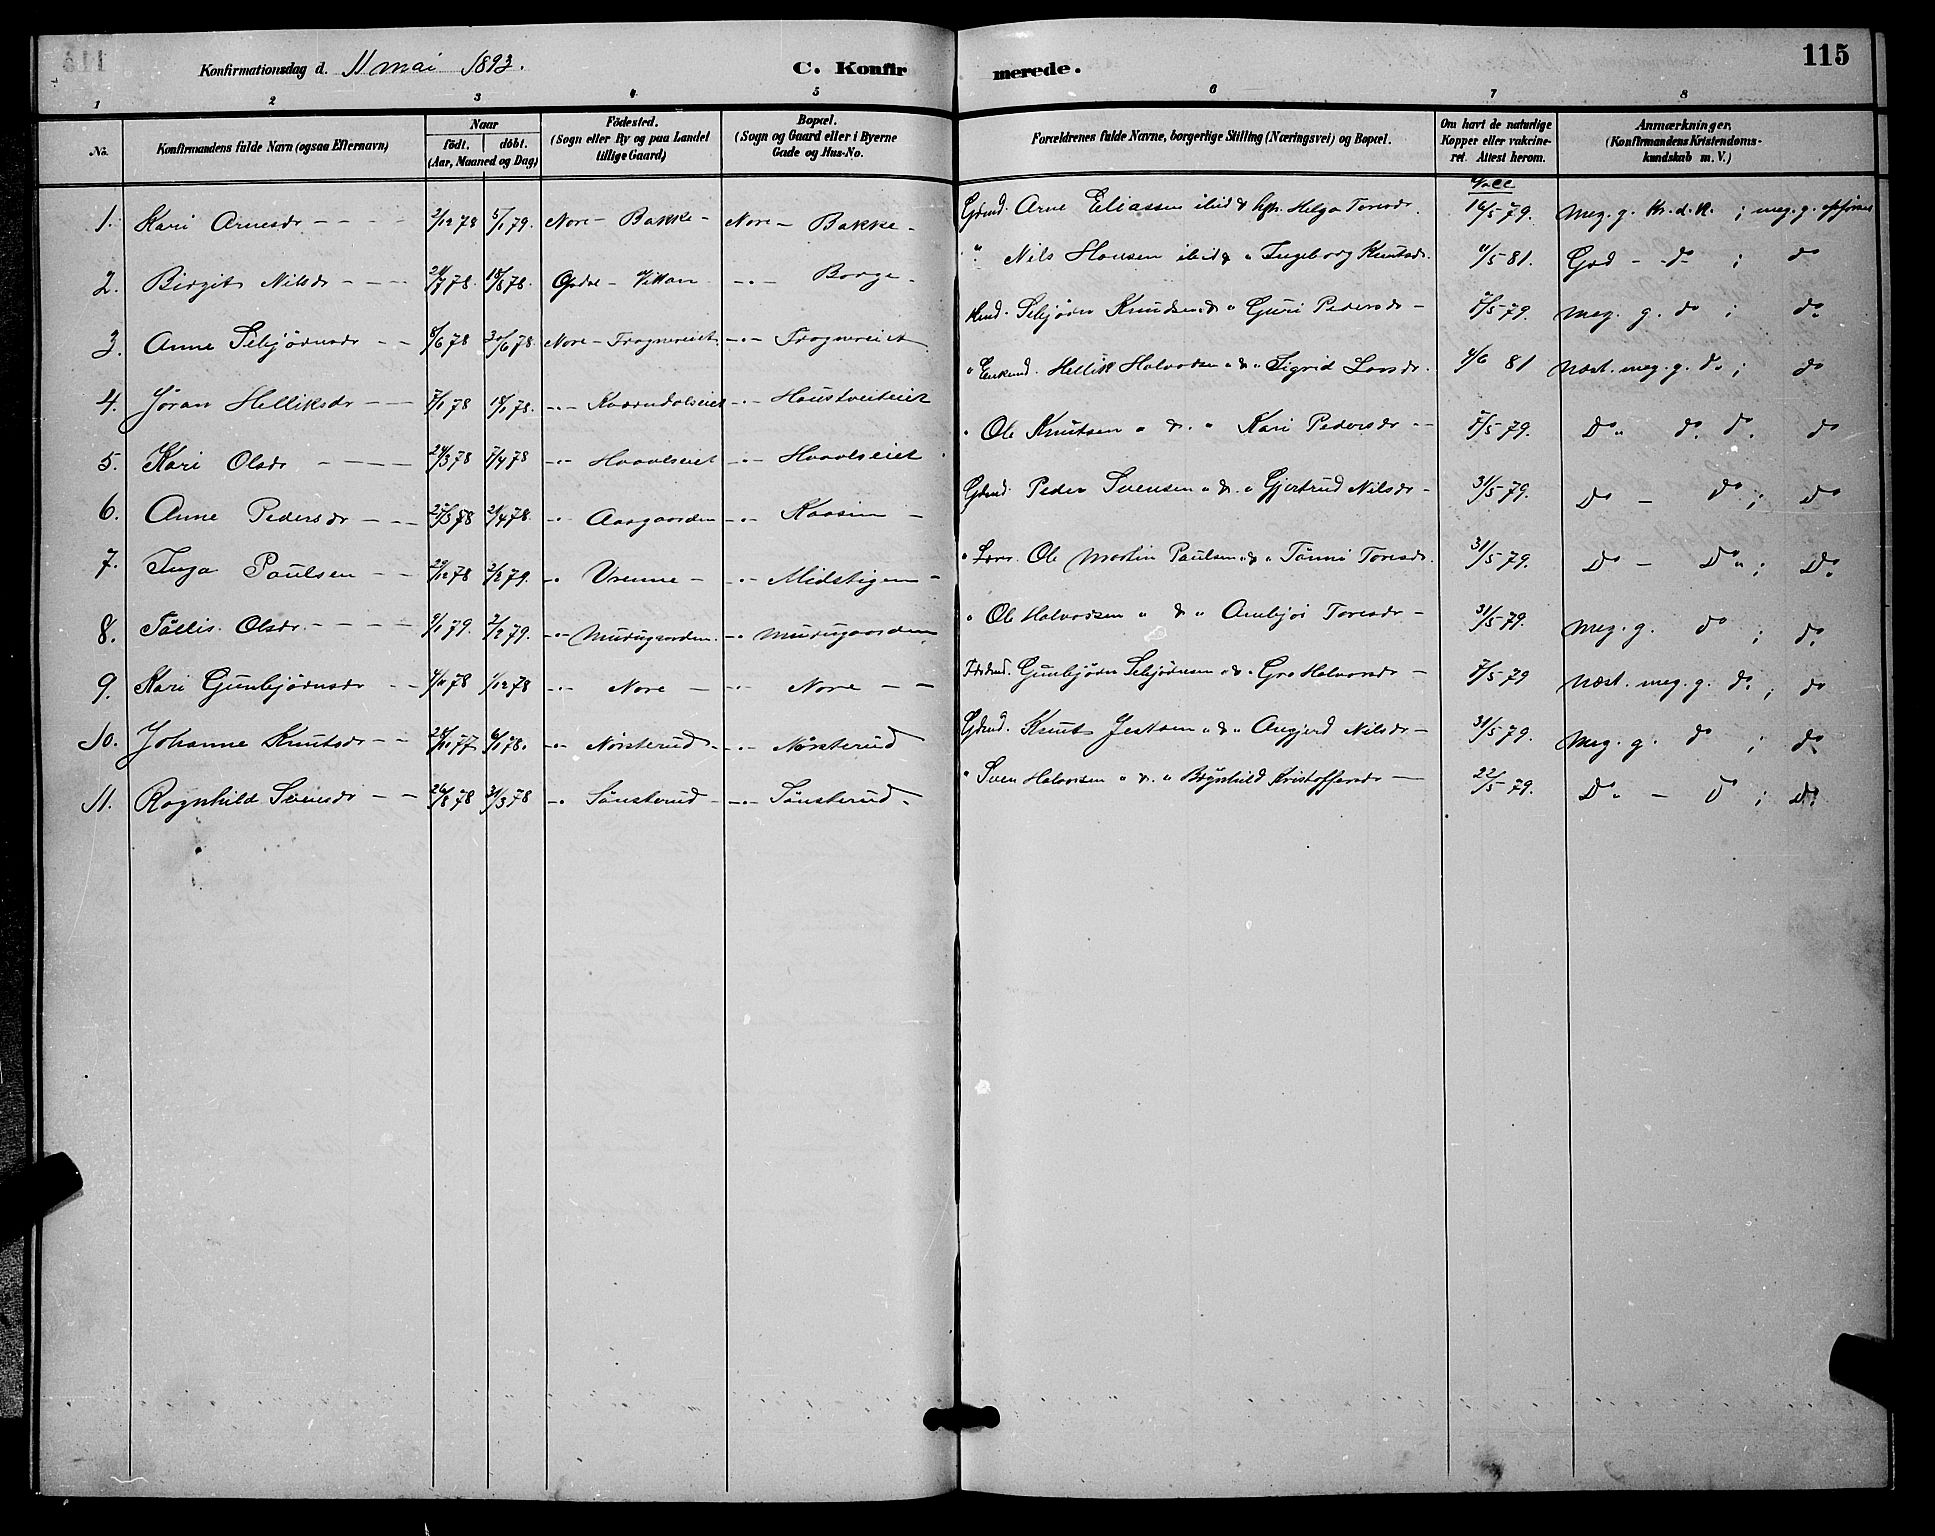 Konfirmationsdag d. 11 mai 1893. C. Konfirmerede. 115
1 2 3 4 5 6 7 8
No. Konfirmandens fulde Navn (ogsaa Efternavn) Naar födt. döbt. (Aar, Maaned og Dag) Födested. (Sogn eller By og paa Landet tillige Gaard) Bopæl. (Sogn og Gaard eller i Byerne Gade og Hus-No. Forældrenes fulde Navne, borgerlige Stilling (Næringsvei) og Bopæl. Om havt de naturlige Kopper eller vakcineret. Attest herom. Anmærkninger. (Konfirmandens Kristendomskundskab m. V.)
1. Kari Arnesdr 2/12 78 5/1 79. Nore - Bakke - Nore - Bakke - Gbrmd. Arne Eliassen ibid & Helga Toresdr. 16/5 79. Meg. g. Kr. d. K. ; meg. g. opførsel
2. Birgit Nilsdr 24/7 78. 18/8 78. Opdal - -"- Borge - " Nils Hansen ibid & " Ingeborg Knutsdr. 11/5 81. God - do ; do
3. Anne Sebjørnsdr 8/6 78 30/6 78. Nore - Frogнereiet -"- Frogнereiet Sebjørn Knudsen " & " Guri Pedersdr - 7/5 79. Meg. g. do ; do
4. Jøran Helliksdr 7/1 78 18/1 78. -"- -"- Haustveiteiet " Enkemd. Hellik Halvorsen " & " Sigrid Larsdr. 4/6 81 Næst. meg. g. do ; do
5. Kari Olsdr 24/3 78 7/4 78 -"- Hvaalseiet -"- Hvaalseiet " Ole Knutsen " & " Kari Pedersdr - 7/5 79. Do do do do
6. Anne Pedersdr 25/3 78 21/4 78. -"- Aasgaarden -"- Kaasin - Gbrmd. Peder Svensen " & " Gjertrud Nilsdr - 31/5 79. Do - Do ; Do
7. Inga Paulsen 29/12 78 2/2 79. -"- Vrenne - -"- Midstigen - " Ole Martin Paulsen " & " Tønni Toresdr. 31/5 79. Do - Do ; Do
8. Tøllis Olsdr. 9/1 79. 2/2 79. -"- Murugaarden. -"- Murugaarden " Ole Halvorsen " & " Ambjør Toresdr - 31/5 79. Meg. g. do ; do
9. Kari Gunbjørnsdr 4/11 78 1/12 78 -"- Nore - -"- Nore - - Gunbjørn Sebjørnsen " & " Gro Halvorsdr - 7/5 79 Næst. meg. g. do ; do
10. Johanne Knutsdr 28/11 77 6/1 78. -"- Nørsterud -"- Nørsterud Gbrmd. Knut Jensen " & " Angjerd Nilsdr - 31/5 79. Meg. g. do ; do
11. Ragnhild Svensdr 78 78 -"- Sønsterud - -"- Sønsterud - " Sven Halvorsen " & " Brynhild Kristoffersdr 22/5 79. Do - D ; Do